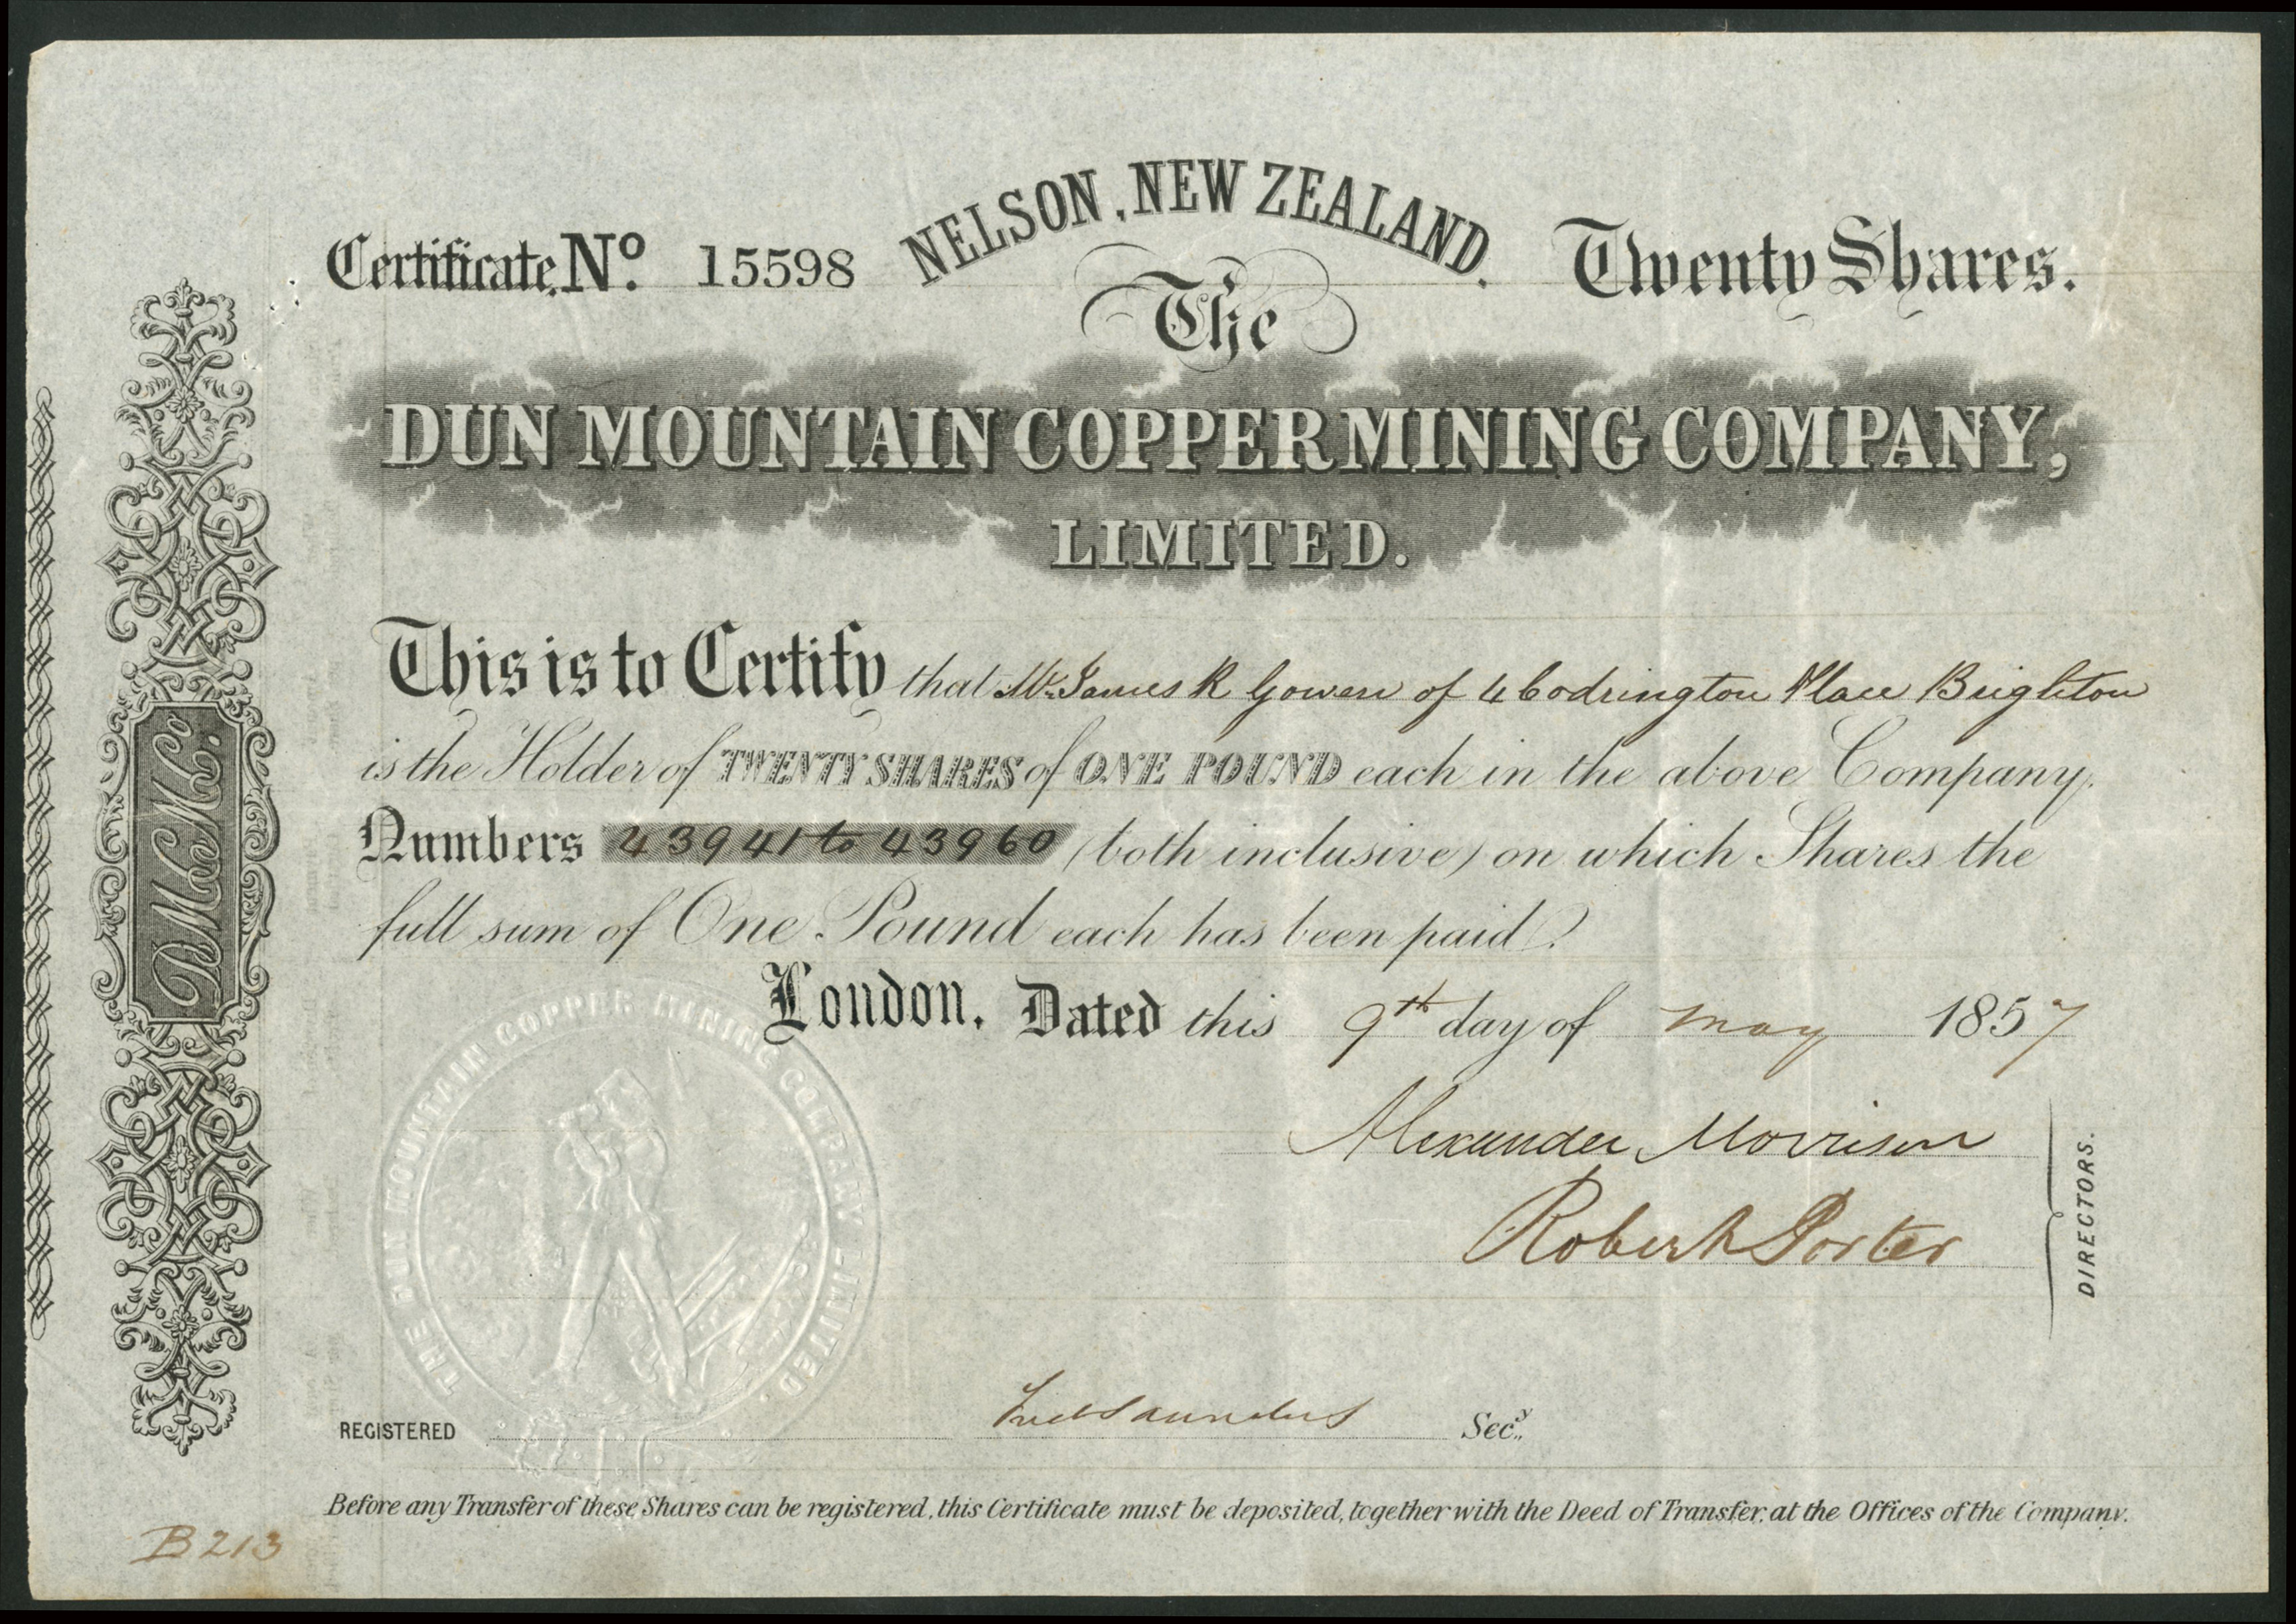 NELSON, NEW ZEALAND.
Certificate, No. 15598
Twenty Shares.
The
DUN MOUNTAIN COPPER MINING COMPANY,
LIMITED.
This is to Certify that Mr. James R Gowen of 4 Codrington Place Brighton
is the Holder of TWENTY SHARES of ONE POUND each in the above Company,
Numbers 43941 to 43960 (both inclusive) on which Shares the
full sum of One Pound each has been paid.
London, Dated this 9th day of May 1857
Alexander Morrison
Robert Porter
DIRECTORS.
REGISTERED
Fredk Saunders Secy.
Before any Transfer of these Shares can be registered, this Certificate must be deposited, together with the Deed of Transfer, at the Offices of the Company.
B213
D.M.C.M.Co.
THE DUN MOUNTAIN COPPER MINING COMPANY LIMITED.